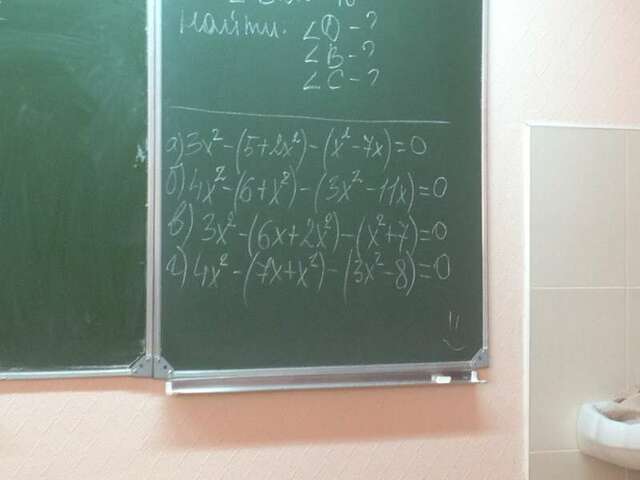 Найти: ∠D - ?
∠B - ?
∠C - ?
а) 3x² - (5 + 2x²) - (x² - 7x) = 0
б) 4x² - (6 + x²) - (3x² - 11x) = 0
в) 3x² - (6x + 2x²) - (x² + 7) = 0
г) 4x² - (7x + x²) - (3x² - 8) = 0
:)